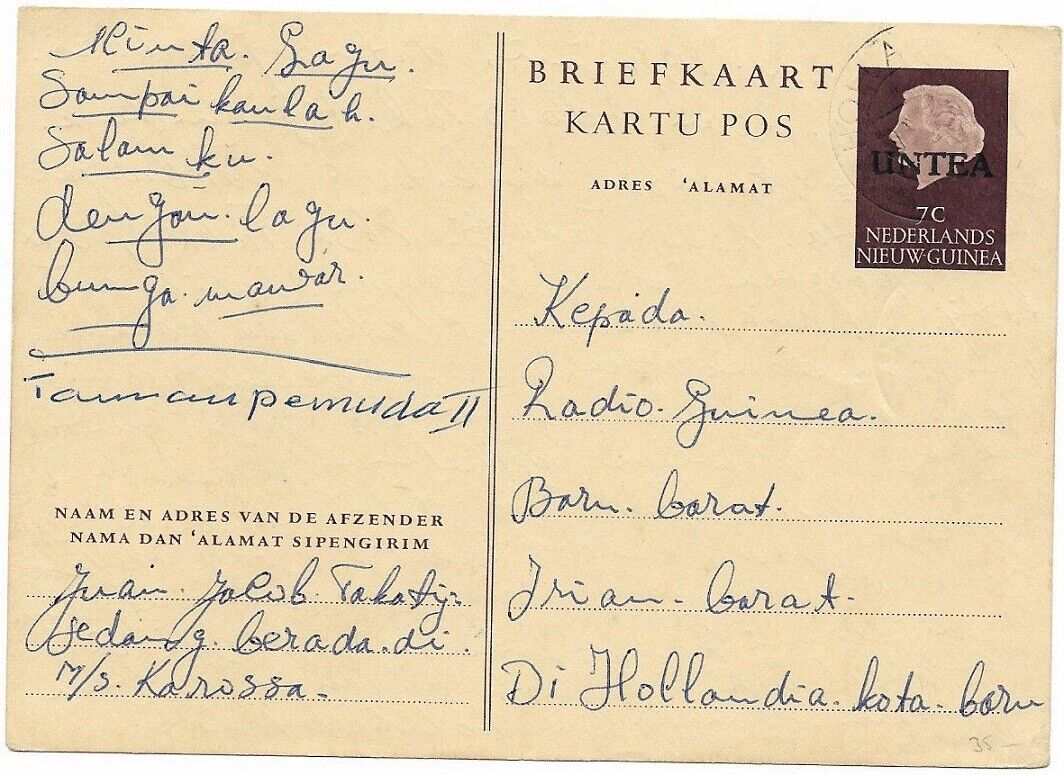 Minta. Lagu.
Sampai kanlah.
Salam ku.
dengan. lagu.
bunga. mawar.
Taman pemuda II
NAAM EN ADRES VAN DE AFZENDER
NAMA DAN 'ALAMAT SIPENGIRIM
Jacob.
sedang. berada. di.
M/S. Karossa.
BRIEFKAART
KARTU POS
ADRES 'ALAMAT
UNTEA
7C
NEDERLANDS
NIEUW-GUINEA
Kepada.
Radio. Guinea.
Baru. barat.
Irian. barat.
Di Hollandia. kota. baru
35-